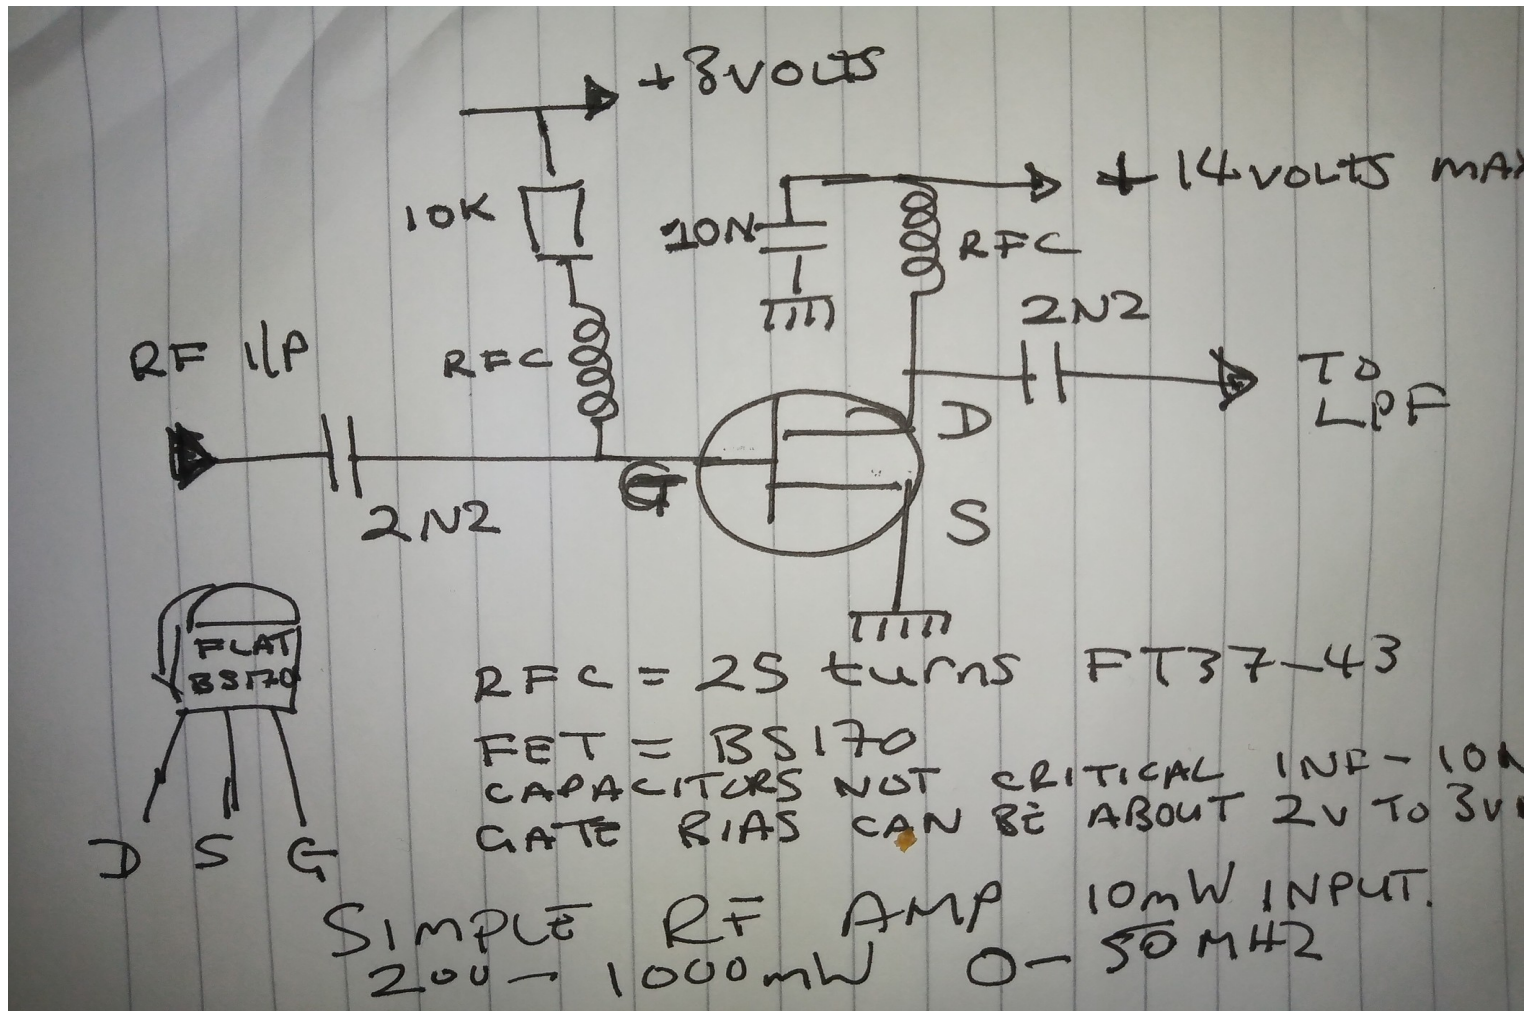 +3VOLTS
+14VOLTS MAX
10K
10N
RFC
2N2
RF I/P
RFC
TO
LPF
D
G
2N2
S
FLAT
BS170
RFC = 25 turns FT37-43
FET = BS170
CAPACITORS NOT CRITICAL 1NF - 10N
GATE BIAS CAN BE ABOUT 2V TO 3V
D S G
SIMPLE RF AMP 10mW INPUT.
200 - 1000mW 0 - 50MHZ